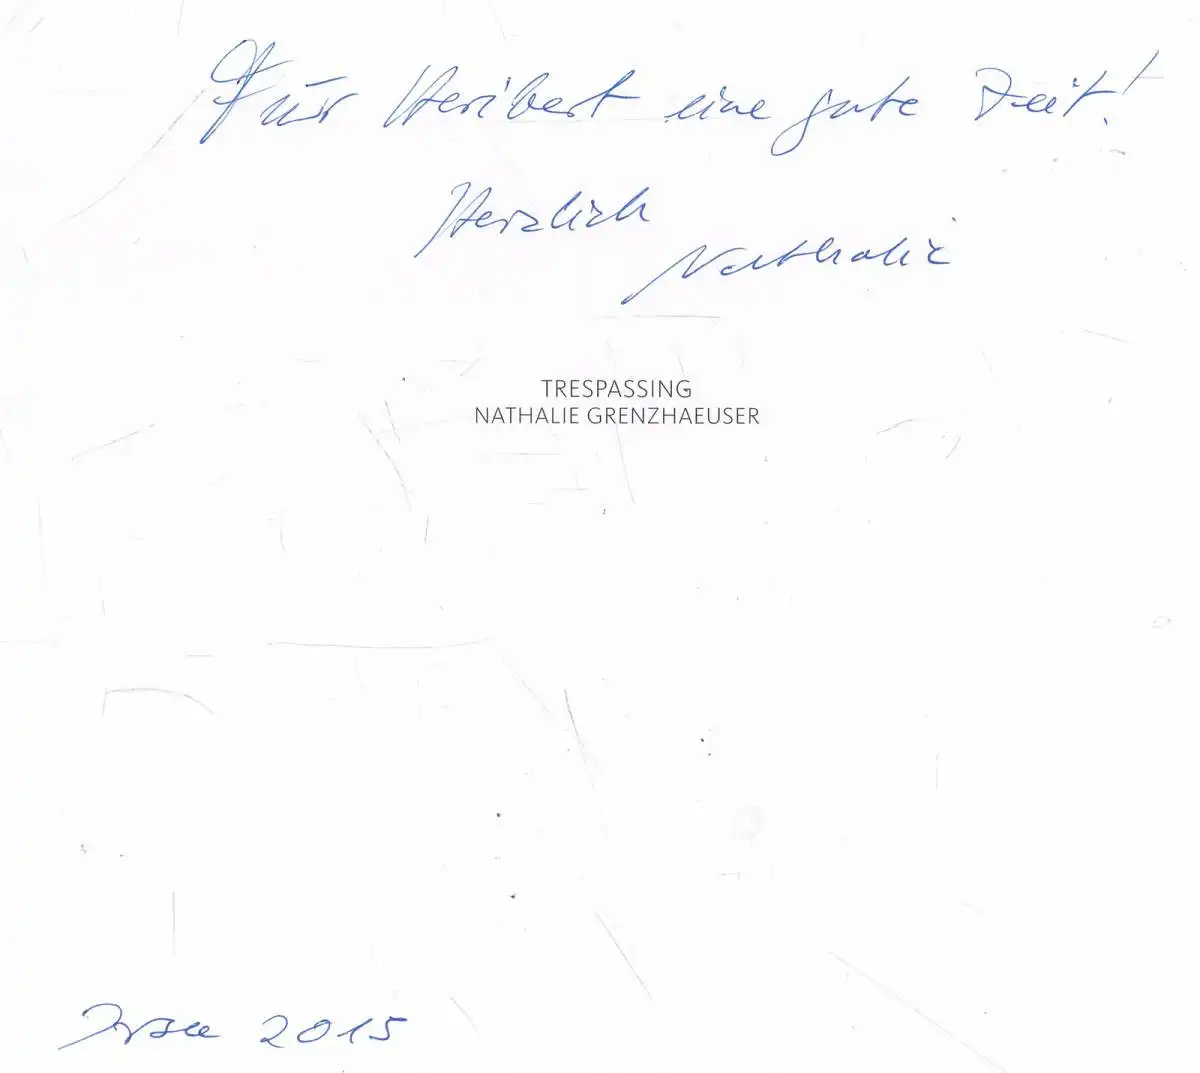 Für Heribert eine gute Zeit!
Herzlich
Nathalie
TRESPASSING
NATHALIE GRENZHAEUSER
Irsee 2015